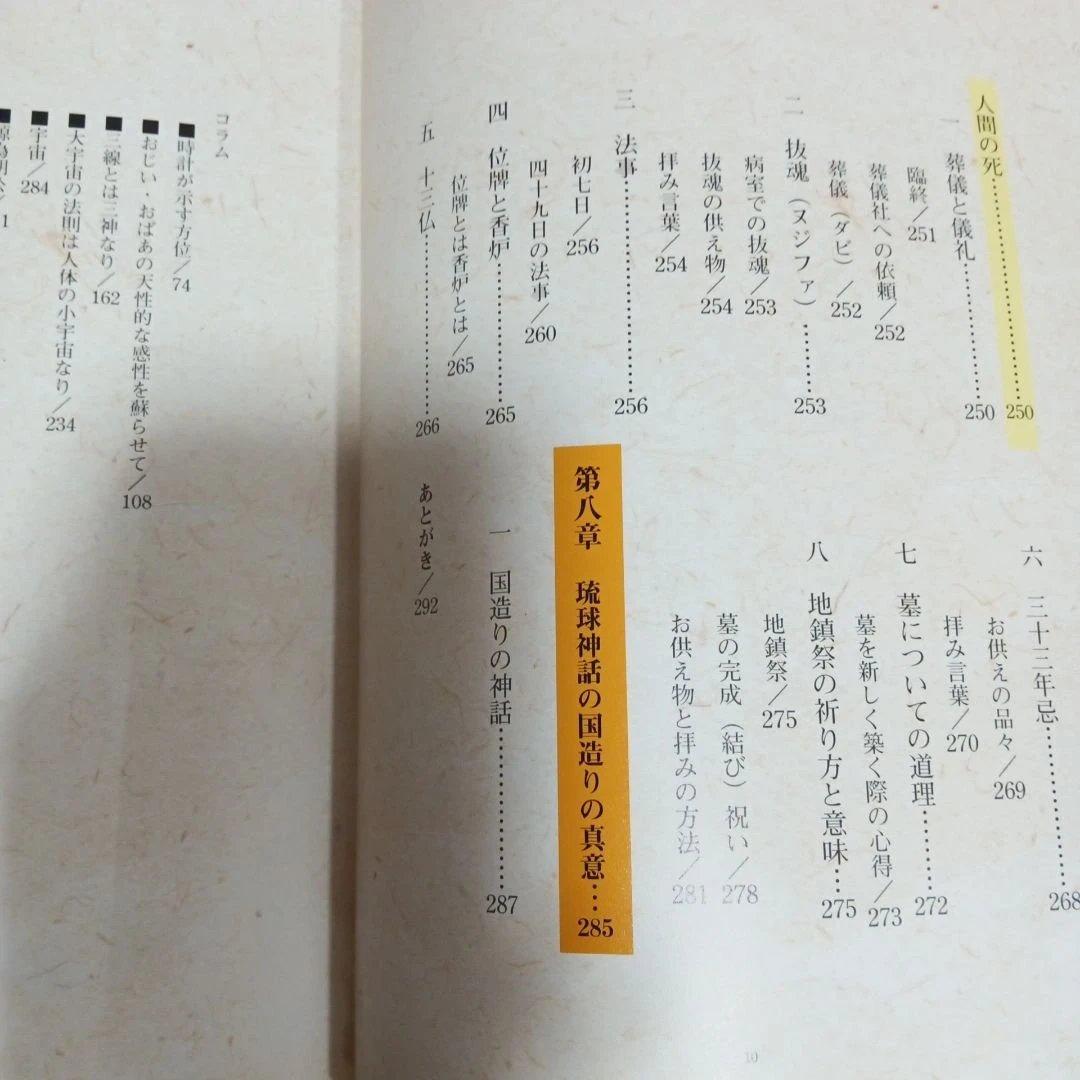 人間の死……250
一 葬儀と儀礼……250
臨終／251
葬儀社への依頼／252
葬儀（ダビ）／252
二 抜魂（ヌジファ）……253
病室での抜魂／253
抜魂の供え物／254
拝み言葉／254
三 法事……256
初七日／256
四十九日の法事／260
四 位牌と香炉……265
位牌とは香炉とは／265
五 十三仏……266
六 三十三年忌……268
お供えの品々／269
拝み言葉／270
七 墓についての道理……272
墓を新しく築く際の心得／273
八 地鎮祭の祈り方と意味……275
地鎮祭／275
墓の完成（結び）祝い／278
お供え物と拝みの方法／281
第八章 琉球神話の国造りの真意…285
一 国造りの神話……287
あとがき／292
10
コラム
■時計が示す方位／74
■おじい・おばぁの天性的な感性を蘇らせて／108
■三線とは三神なり／162
■大宇宙の法則は人体の小宇宙なり／234
■宇宙／284